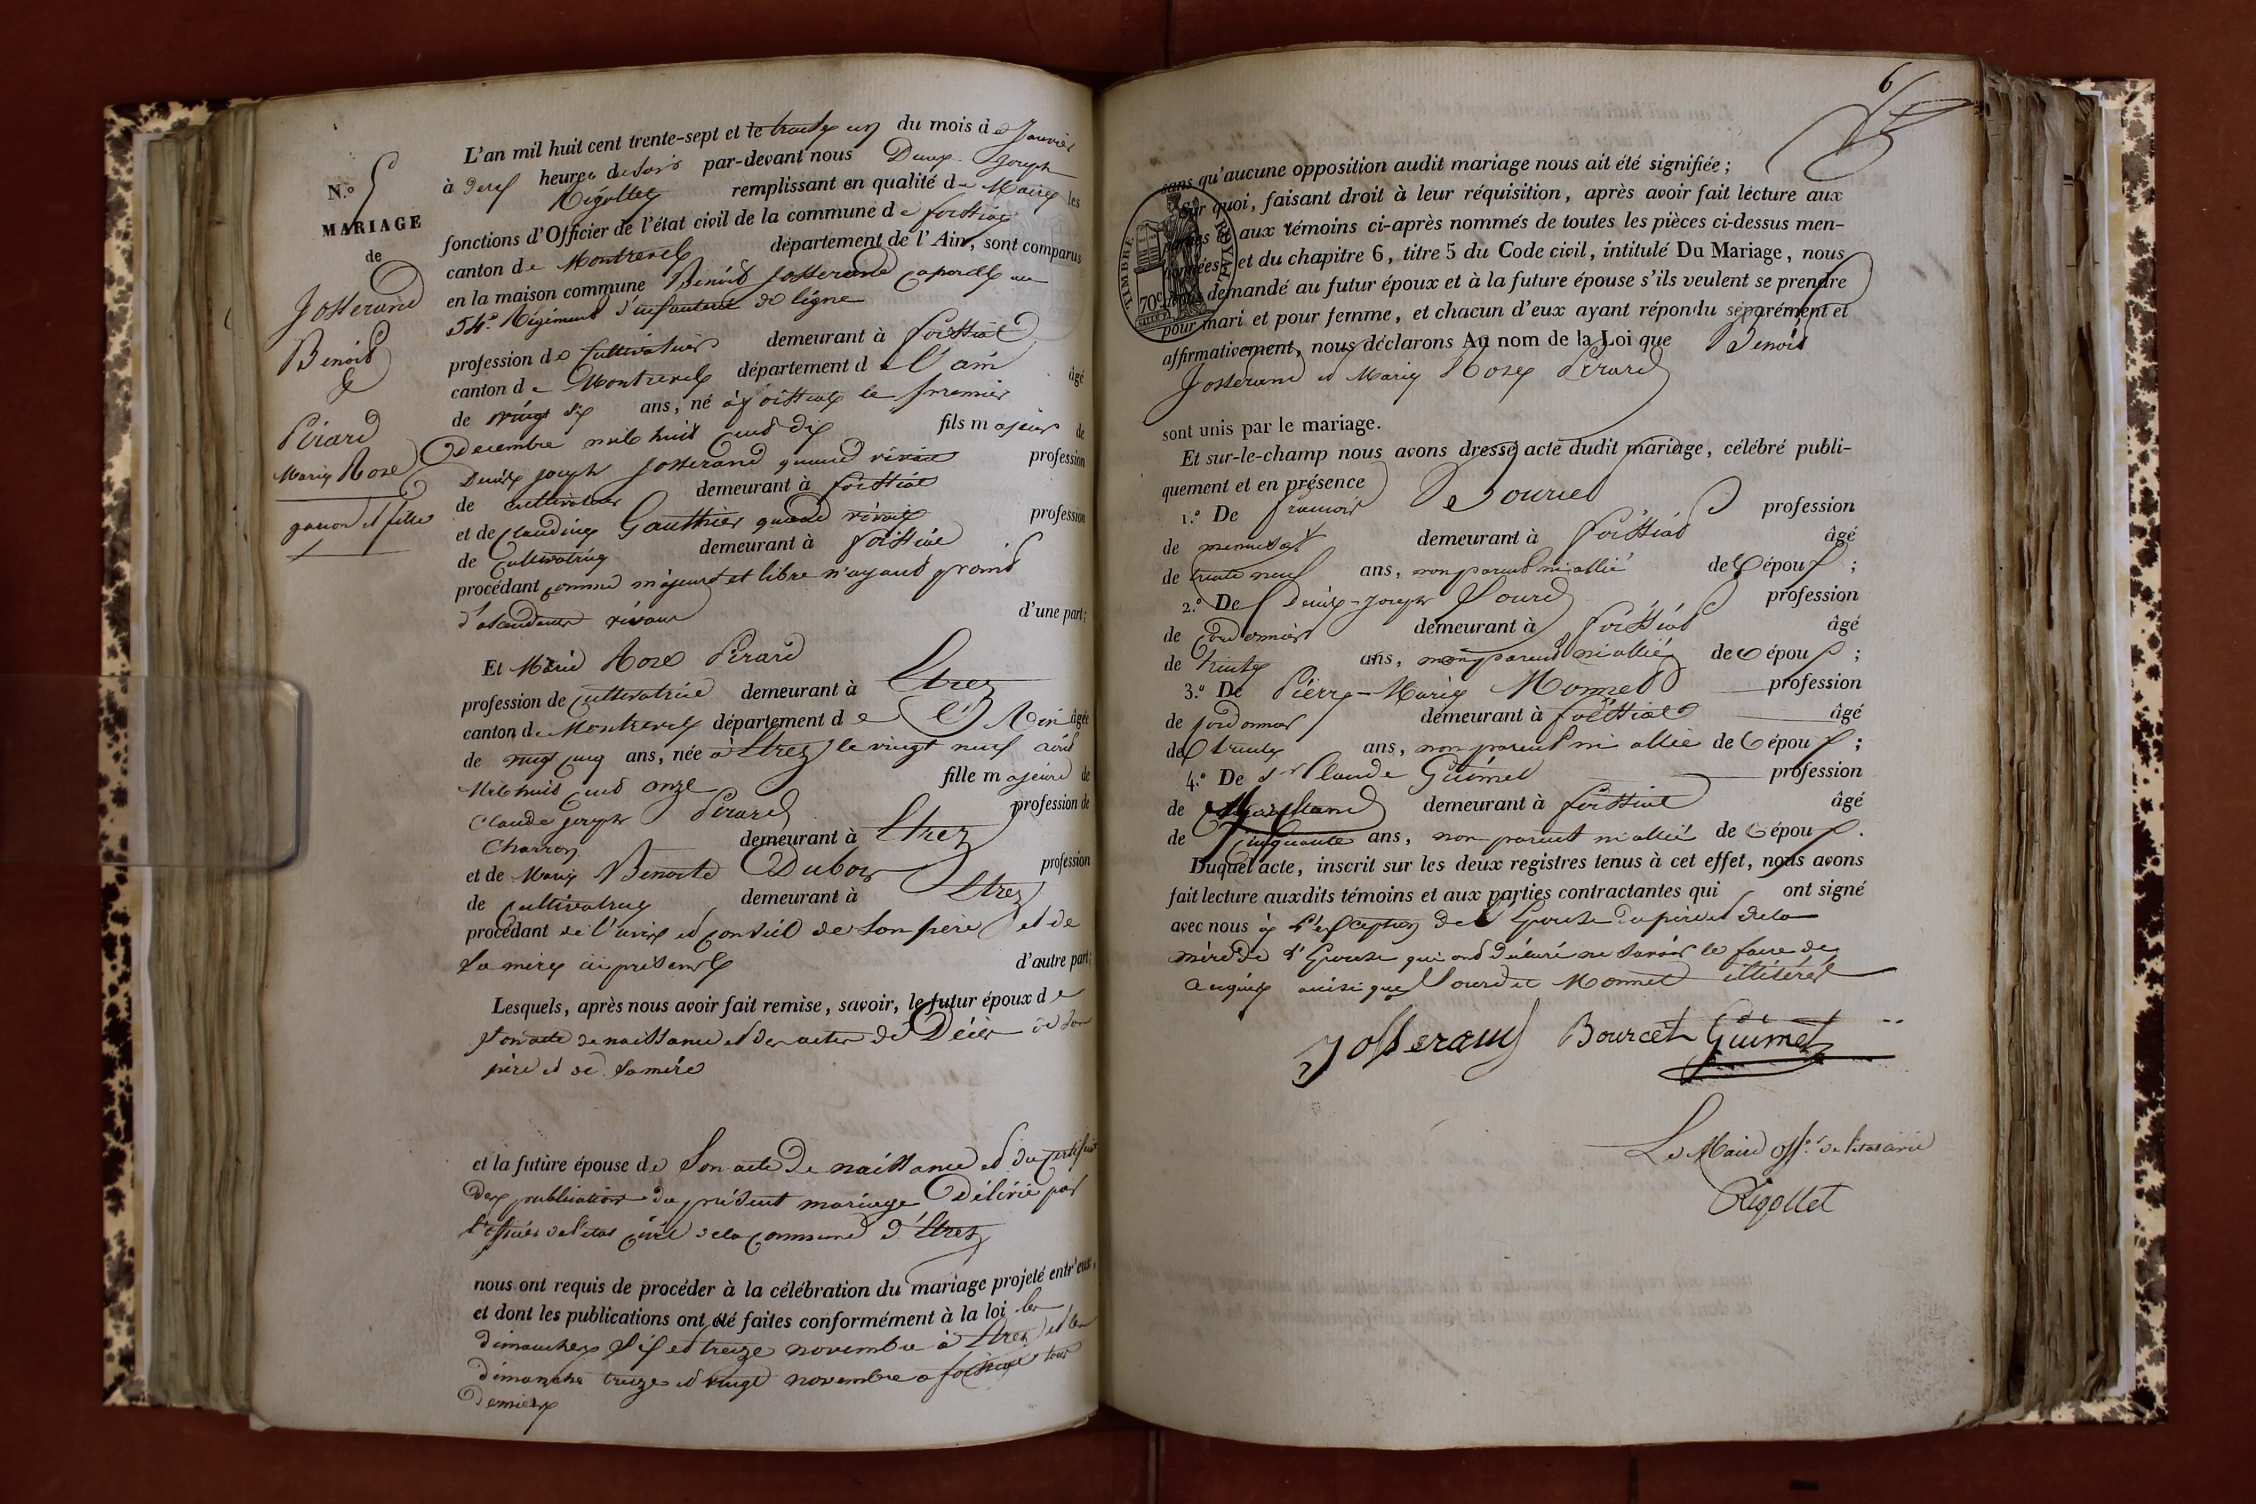 N.º 5
MARIAGE
de
Josserand
Benoit
&
Pérard
Marie Rose
garcon et fille
L'an mil huit cent trente-sept et le trente un du mois de Janvier
à deux heures du soir par-devant nous Denis Joseph
Rigollet remplissant en qualité de Maire les
fonctions d'Officier de l'état civil de la commune de foissiat
canton de Montrevel département de l'Ain, sont comparus
en la maison commune Benoit Josserand caporal au
54e Régiment d'infanterie de ligne
profession de Cultivateur demeurant à foissiat
canton de Montrevel département de l'ain âgé
de vingt six ans, né à foissiat le premier
Decembre mil huit Cent dix fils majeur de
Denis joseph Josserand quand vivait profession
de cultivateur demeurant à foissiat
et de Claudine Gauthier quand vivait profession
de Cultivatrice demeurant à foissiat
procédant comme majeur et libre n'ayant point
d'ascendants vivant d'une part;
Et Marie Rose Pérard
profession de Cultivatrice demeurant à Etrez
canton de Montrevel département de l'Ain âgée
de vingt cinq ans, née à Etrez le vingt neuf avril
Mil huit Cent onze fille majeure de
Claude joseph Pérard profession de
Charron demeurant à Etrez
et de Marie Benoite Dubois profession
de Cultivatrice demeurant à Etrez
procédant de l'avis et conseil de son père et de
sa mère ici présents d'autre part;
Lesquels, après nous avoir fait remise, savoir, le futur époux de
son acte de naissance et des actes de Décès de son
père et de sa mère
et la future épouse de Son acte de naissance et du certificat
des publications du présent mariage Délivré par
l'officier de l'etat civil de la commune d'Etrez
nous ont requis de procéder à la célébration du mariage projeté entr'eux,
et dont les publications ont été faites conformément à la loi les
dimanches six et treize novembre à Etrez et les
dimanche treize et vingt novembre a foissiat tous
derniers
6
sans qu'aucune opposition audit mariage nous ait été signifiée;
Sur quoi, faisant droit à leur réquisition, après avoir fait lecture aux
parties et aux témoins ci-après nommés de toutes les pièces ci-dessus men-
tionnées, et du chapitre 6, titre 5 du Code civil, intitulé Du Mariage, nous
avons demandé au futur époux et à la future épouse s'ils veulent se prendre
pour mari et pour femme, et chacun d'eux ayant répondu séparément et
affirmativement, nous déclarons Au nom de la Loi que Benoit
Josserand et Marie Rose Pérard
TIMBRE ROYAL
70c
sont unis par le mariage.
Et sur-le-champ nous avons dressé acte dudit mariage, célébré publi-
quement et en présence
1.º De francois Bourcet profession
de demeurant à foissiat âgé
de trente neuf ans, non parent ni allié de l'époux;
2.º De Denis-Joseph Sourd profession
de Cordonnier demeurant à foissiat âgé
de trente ans, non parent ni allié de l'époux;
3.º De Pierre-Marie Monnet profession
de cordonnier demeurant à foissiat âgé
de trente ans, non parent ni allié de l'époux;
4.º De sr Claude Guimet profession
de Marchand demeurant à foissiat âgé
de Cinquante ans, non parent ni allié de l'époux.
Duquel acte, inscrit sur les deux registres tenus à cet effet, nous avons
fait lecture auxdits témoins et aux parties contractantes qui ont signé
avec nous à l'exception de l'Epouse du père et de la
mère de l'Epouse qui ont déclaré ne savoir le faire de
ce requis ainsi que Sourd et Monnet illitérés
Josserand Bourcet Guimet
Le Maire off. de l'etat civil
Rigollet